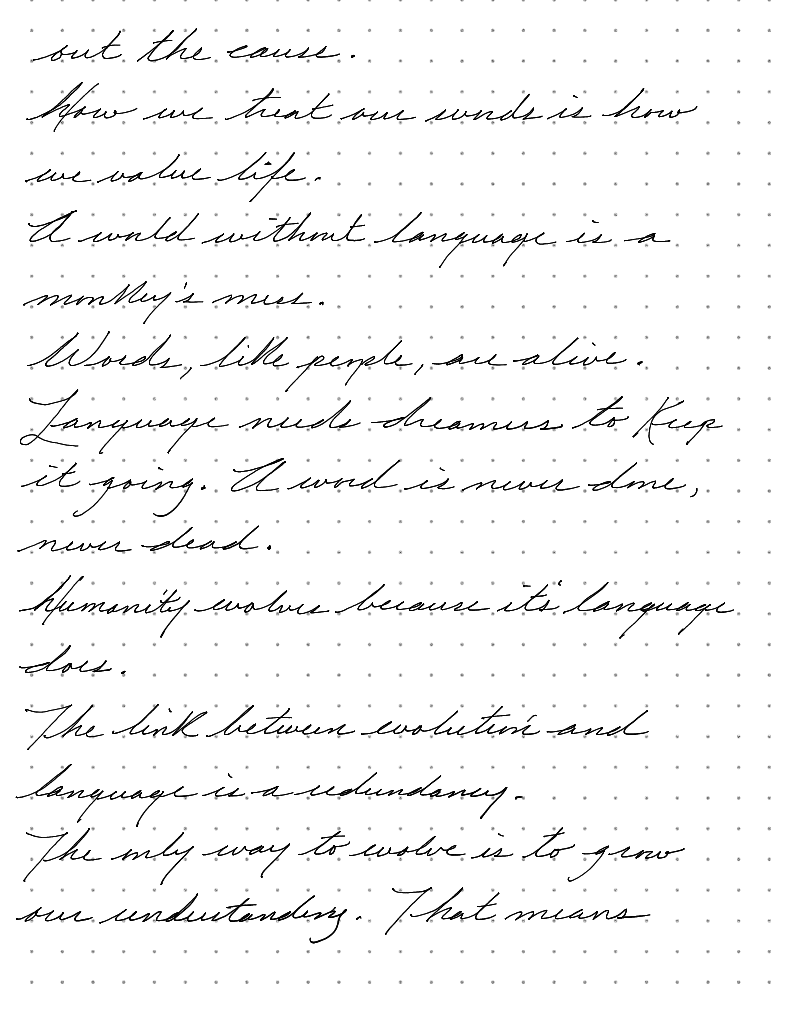 out the cause.
How we treat our words is how
we value life.
A world without language is a
monkey's mess.
Words, like people, are alive.
Language needs dreamers to keep
it going. A word is never done,
never dead.
Humanity evolves because it's language
does.
The link between evolution and
language is a redundancy.
The only way to evolve is to grow
our understanding. That means